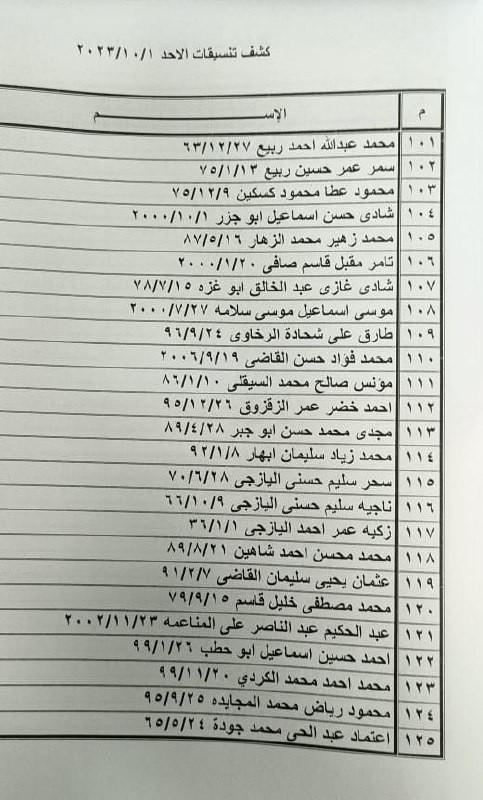 كشف تنسيقات الاحد ٢٠٢٣/١٠/١
م الإســـم
١٠١ محمد عبدالله احمد ربيع ٦٣/١٢/٢٧
١٠٢ سمر عمر حسين ربيع ٧٥/١/١٣
١٠٣ محمود عطا محمود كسكين ٧٥/١٢/٩
١٠٤ شادى حسن اسماعيل ابو جزر ٢٠٠٠/١٠/١
١٠٥ محمد زهير محمد الزهار ٨٧/٥/١٦
١٠٦ تامر مقبل قاسم صافى ٢٠٠٠/١/٢٠
١٠٧ شادى غازى عبد الخالق ابو غزه ٧٨/٧/١٥
١٠٨ موسى اسماعيل موسى سلامه ٢٠٠٠/٧/٢٧
١٠٩ طارق على شحادة الرخاوى ٩٦/٩/٢٤
١١٠ محمد فؤاد حسن القاضى ٢٠٠٦/٩/١٩
١١١ مؤنس صالح محمد السيقلى ٨٦/١/١٠
١١٢ احمد خضر عمر الزقزوق ٩٥/١٢/٢٦
١١٣ مجدى محمد حسن ابو جبر ٨٩/٤/٢٨
١١٤ محمد زياد سليمان ابهار ٩٢/١/٨
١١٥ سحر سليم حسنى اليازجى ٧٠/٦/٢٨
١١٦ ناجيه سليم حسنى اليازجى ٦٦/١٠/٩
١١٧ زكيه عمر احمد اليازجى ٣٦/١/١
١١٨ محمد محسن احمد شاهين ٨٩/٨/٢١
١١٩ عثمان يحيى سليمان القاضى ٩١/٢/٧
١٢٠ محمد مصطفى خليل قاسم ٧٩/٩/١٥
١٢١ عبد الحكيم عبد الناصر على المناعمه ٢٠٠٢/١١/٢٣
١٢٢ احمد حسين اسماعيل ابو حطب ٩٩/١/٢٦
١٢٣ محمد احمد محمد الكردي ٩٩/١١/٢٠
١٢٤ محمود رياض محمد المجايده ٩٥/٩/٢٥
١٢٥ اعتماد عبد الحى محمد جودة ٦٥/٥/٢٤